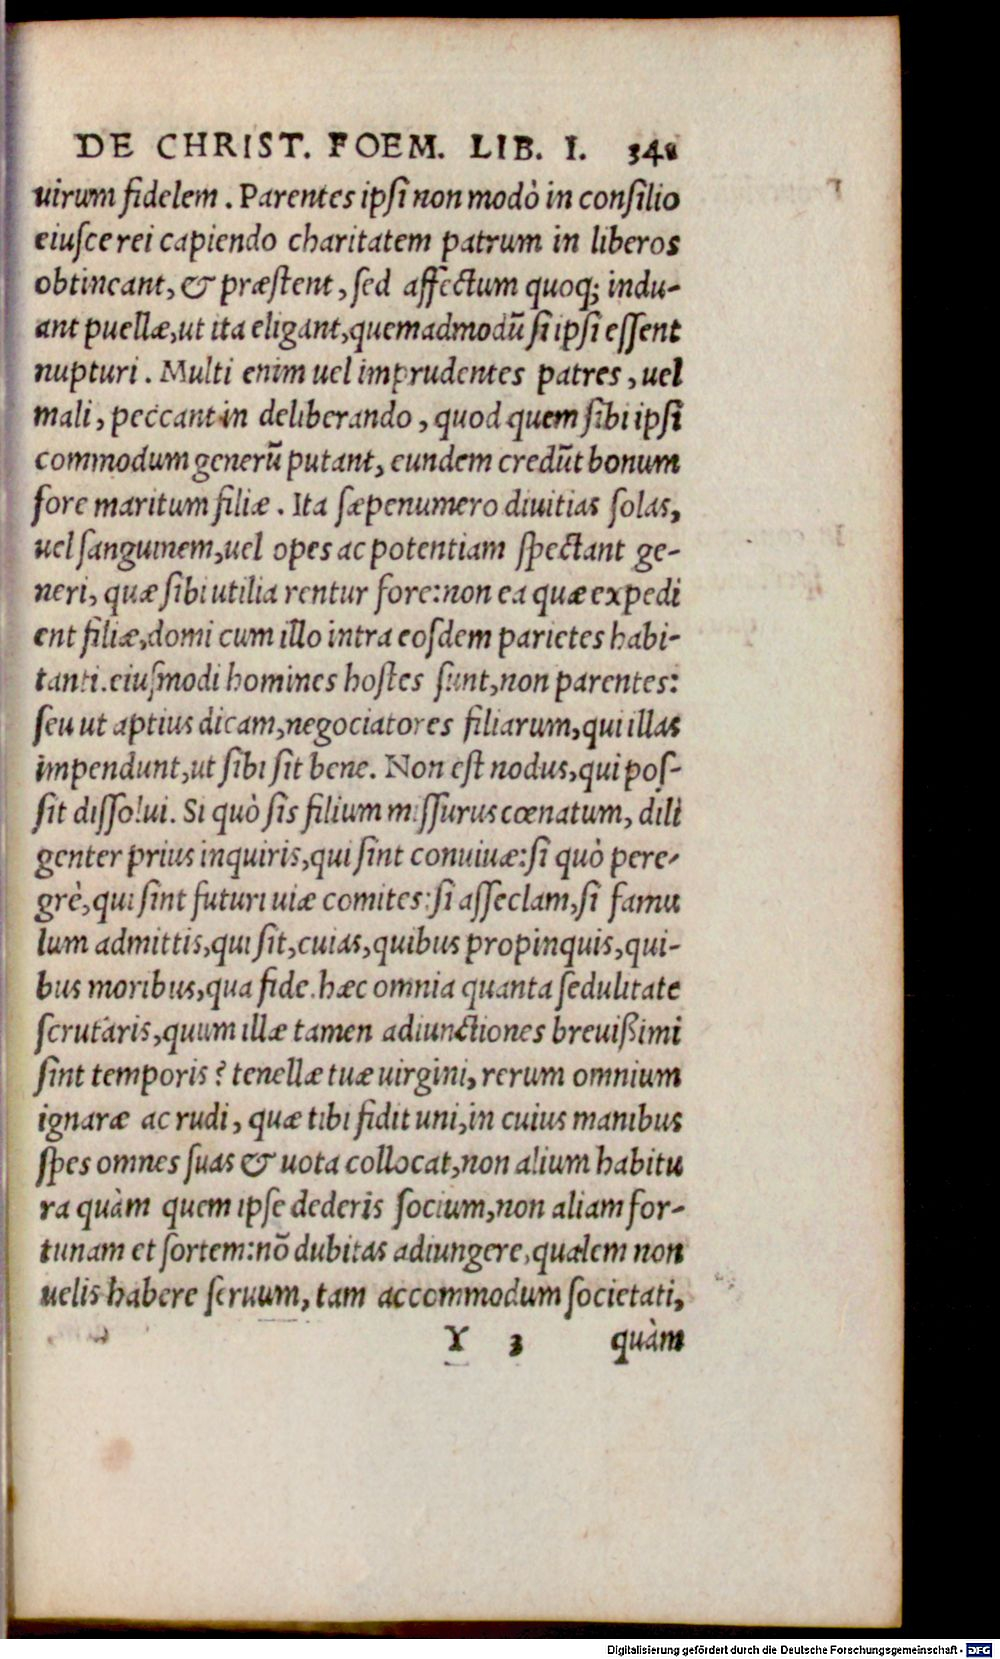 DE CHRIST. FOEM. LIB. I. 341
uirum fidelem. Parentes ipſi non modò in conſilio
eiuſce rei capiendo charitatem patrum in liberos
obtineant, & præſtent, ſed affectum quoq; indu-
ant puellæ, ut ita eligant, quemadmodū ſi ipſi eſſent
nupturi. Multi enim uel imprudentes patres, uel
mali, peccant in deliberando, quod quem ſibi ipſi
commodum generū putant, eundem credūt bonum
fore maritum filiæ. Ita ſæpenumero diuitias ſolas,
uel ſanguinem, uel opes ac potentiam ſpectant ge-
neri, quæ ſibi utilia rentur fore: non ea quæ expedi
ent filiæ, domi cum illo intra eoſdem parietes habi-
tanti. eiuſmodi homines hoſtes ſunt, non parentes:
ſeu ut aptius dicam, negociatores filiarum, qui illas
impendunt, ut ſibi ſit bene. Non eſt nodus, qui poſ-
ſit diſſolui. Si quò ſis filium miſſurus cœnatum, dili
genter prius inquiris, qui ſint conuiuæ: ſi quò pere-
grè, qui ſint futuri uiæ comites: ſi aſſeclam, ſi famu
lum admittis, qui ſit, cuias, quibus propinquis, qui-
bus moribus, qua fide. hæc omnia quanta ſedulitate
ſcrutaris, quum illæ tamen adiunctiones breuißimi
ſint temporis? tenellæ tuæ uirgini, rerum omnium
ignaræ ac rudi, quæ tibi fidit uni, in cuius manibus
ſpes omnes ſuas & uota collocat, non alium habitu
ra quàm quem ipſe dederis ſocium, non aliam for-
tunam et ſortem: nō dubitas adiungere, qualem non
uelis habere ſeruum, tam accommodum ſocietati,
Y 3 quàm
Digitalisierung gefördert durch die Deutsche Forschungsgemeinschaft - DFG